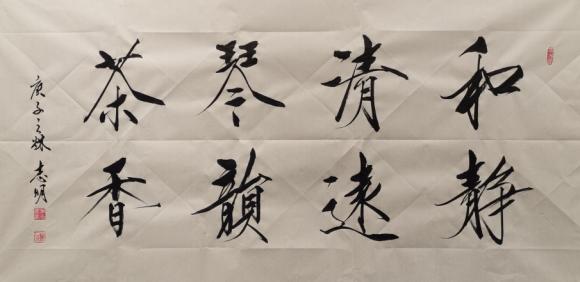 和静
清遠
琴韻
茶香
庚子之秋 志明